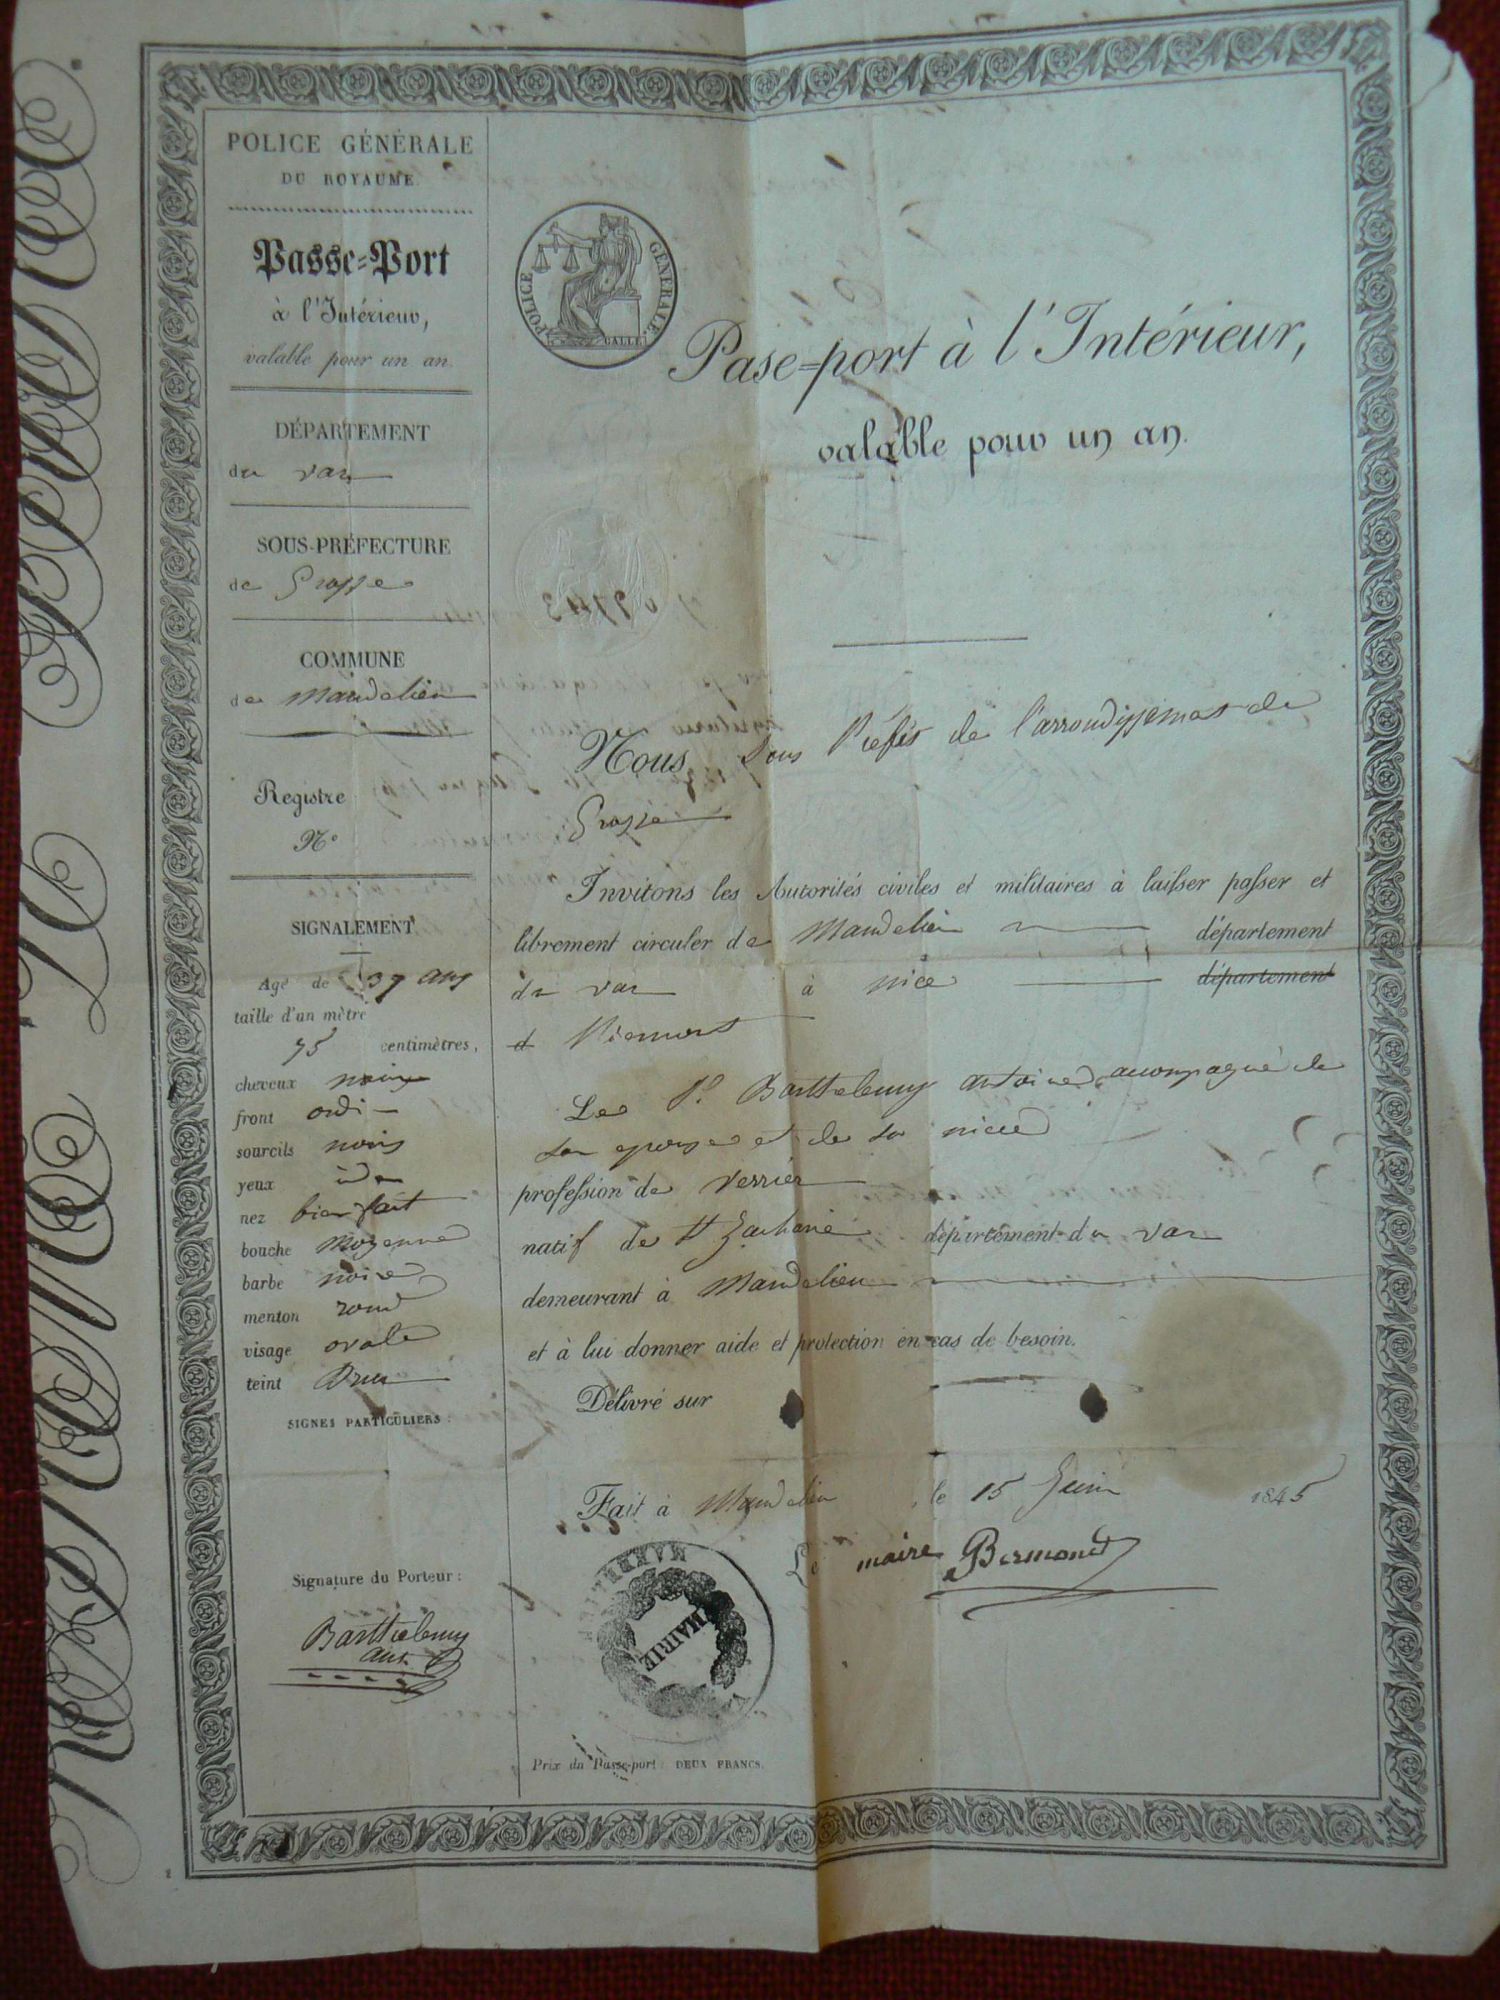 POLICE GÉNÉRALE
DU ROYAUME.
Passe=Port
à l'Intérieur,
valable pour un an.
DÉPARTEMENT
du var
SOUS-PRÉFECTURE
de Grasse
COMMUNE
de Mandelieu
Registre
N.º
SIGNALEMENT
Agé de 37 ans
taille d'un mètre
75 centimètres,
cheveux noirs
front ordi
sourcils noirs
yeux idem
nez bien fait
bouche moyenne
barbe noire
menton rond
visage ovale
teint Brun
SIGNES PARTICULIERS :
Signature du Porteur :
Barthelemy
ant.
POLICE GÉNÉRALE.
GALLE
Pase=port à l'Intérieur,
valable pour un an.
Nous, Sous Préfet de l'arrondissement de
Grasse
Invitons les Autorités civiles et militaires à laisser passer et
librement circuler de Mandelieu département
du var à nice département
d Piemont
Le Sr Barthelemy antoine accompagné de
son epouse et de sa niece
profession de verrier
natif de St Zacharie département du var
demeurant à Mandelieu
et à lui donner aide et protection en cas de besoin.
Délivré sur
Fait à Mandelieu, le 15 Juin 1845
Le maire Bermond
MAIRIE
Prix du Passe-port : DEUX FRANCS.